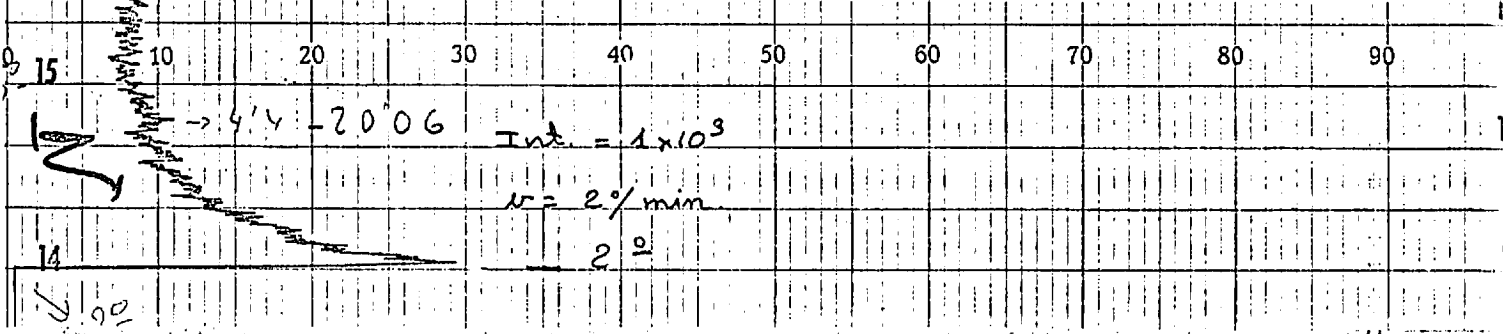 0 10 20 30 40 50 60 70 80 90
15
→ 4'4 - 20'06
Int. = 1x10³
v = 2°/min.
14
2°